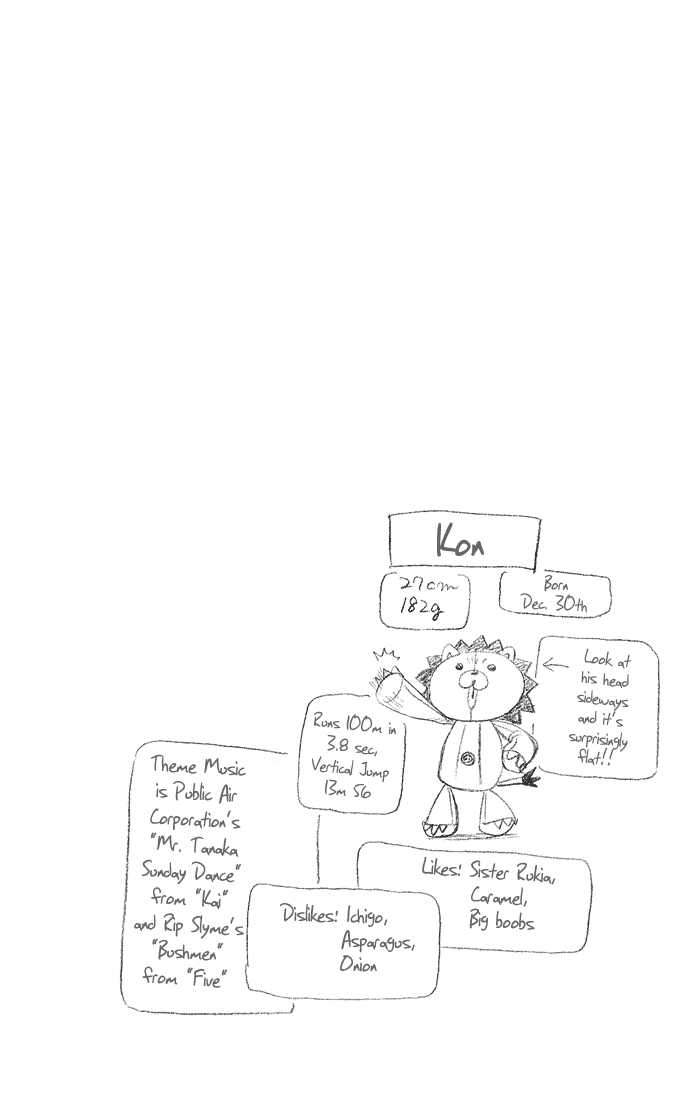 Kon
27cm
182g
Born
Dec. 30th
Look at
his head
sideways
and it's
surprisingly
flat!!
Runs 100m in
3.8 sec,
Vertical Jump
13m 56
Theme Music
is Public Air
Corporation's
"Mr. Tanaka
Sunday Dance"
from "Kai"
and Rip Slyme's
"Bushmen"
from "Five"
Likes: Sister Rukia,
Caramel,
Big boobs
Dislikes: Ichigo,
Asparagus,
Onion